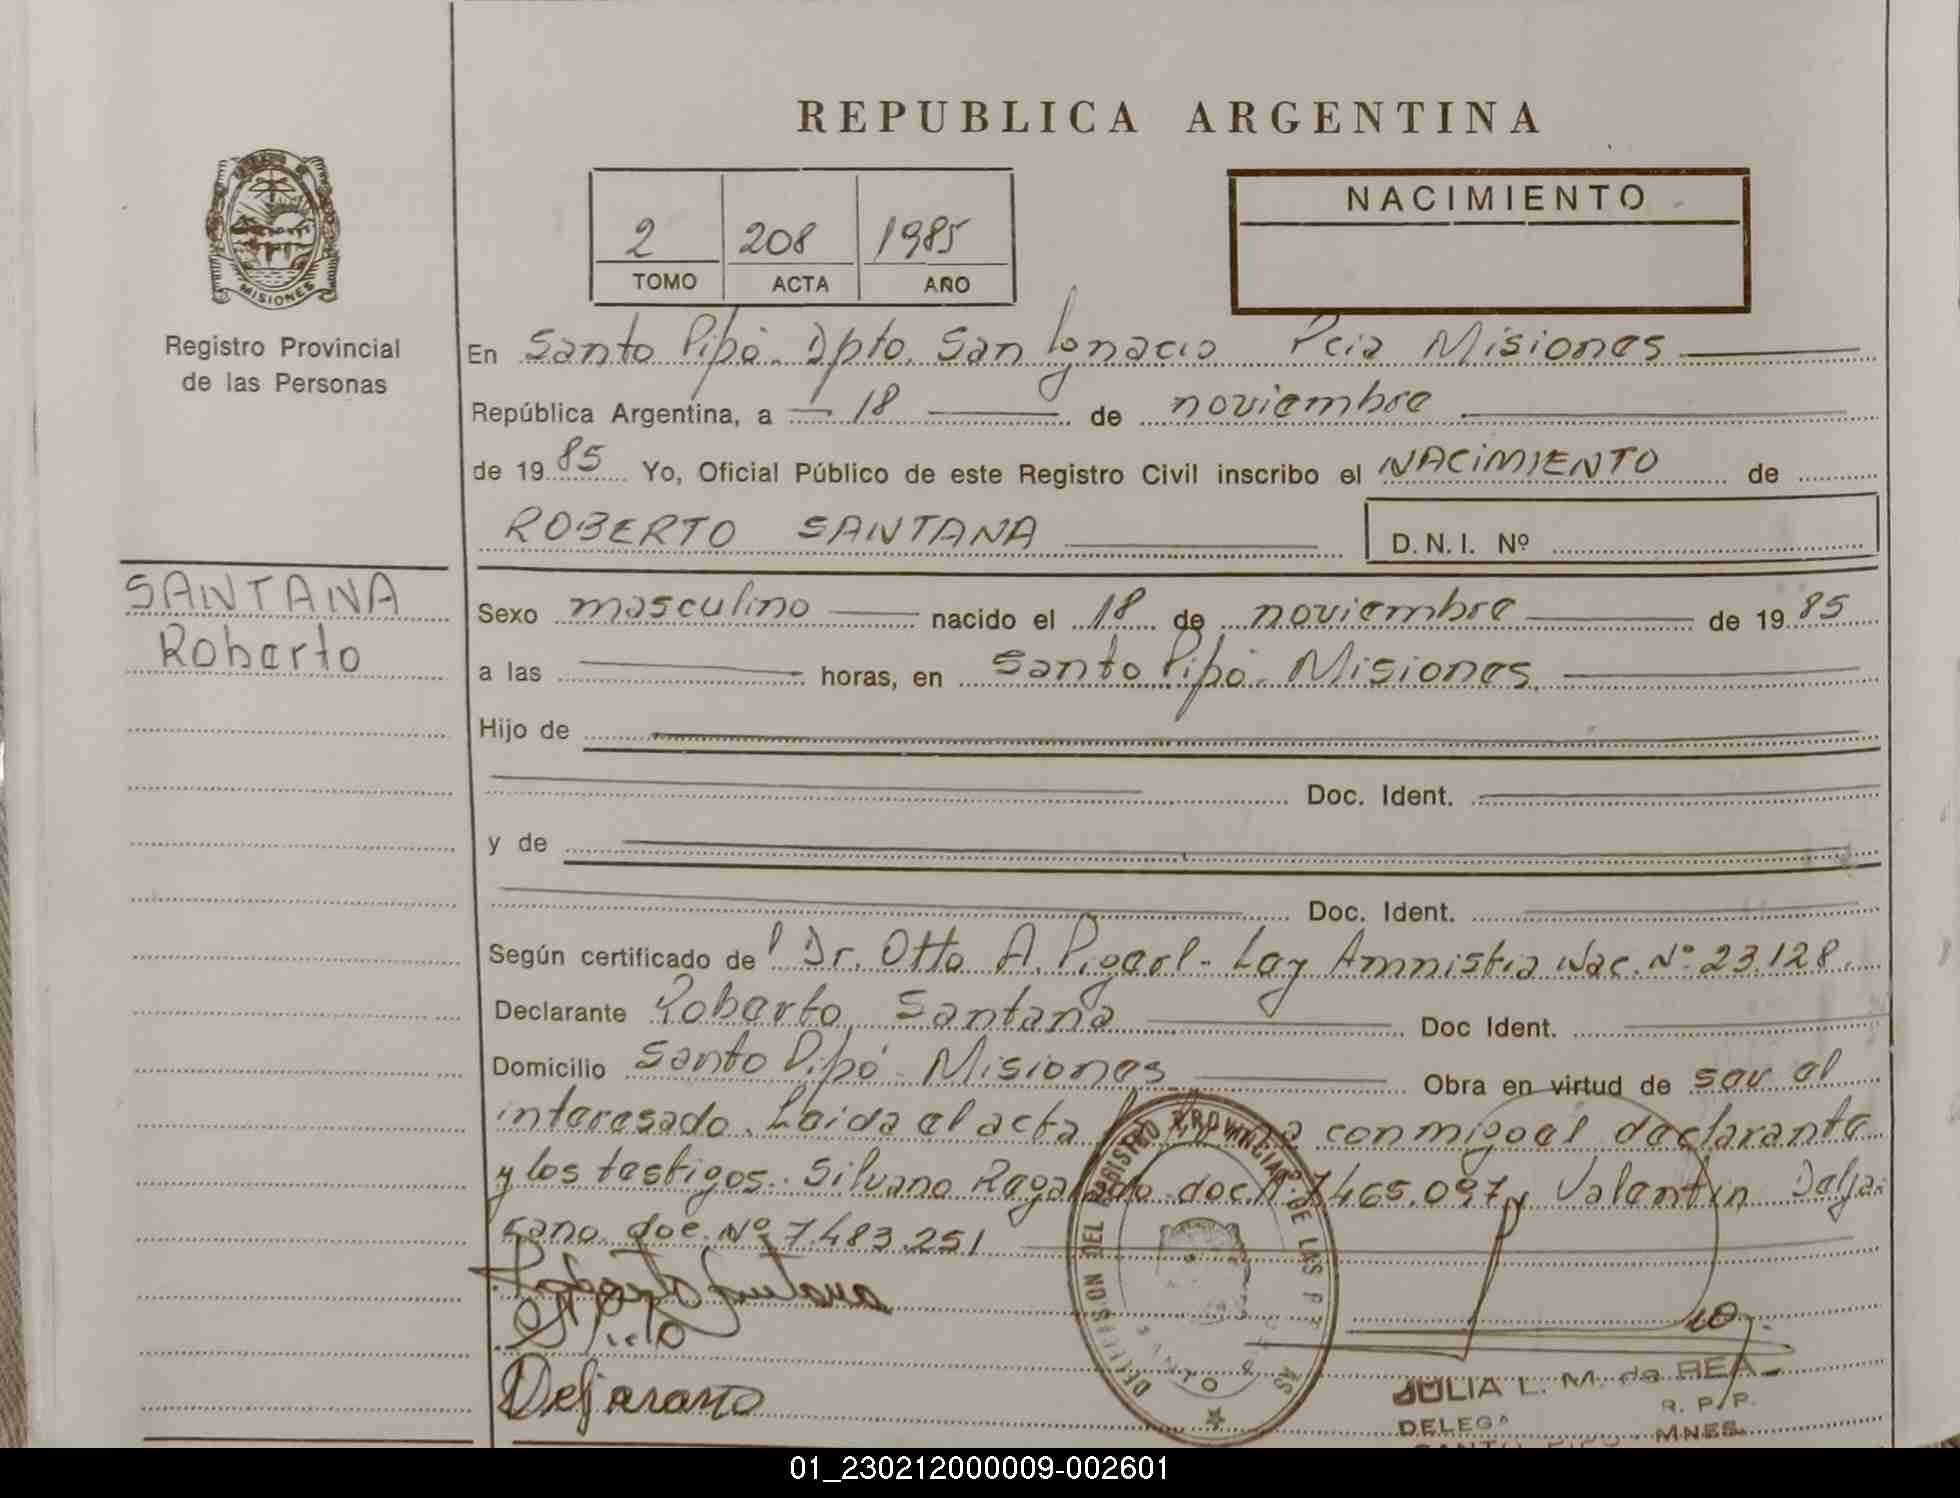 REPUBLICA ARGENTINA
MISIONES
Registro Provincial
de las Personas
2 208 1985
TOMO ACTA AÑO
NACIMIENTO
En Santo Pipó. Dpto. San Ignacio Pcia Misiones
República Argentina, a 18 de noviembre
de 1985 Yo, Oficial Público de este Registro Civil inscribo el NACIMIENTO de
ROBERTO SANTANA D.N.I. Nº
SANTANA
Roberto
Sexo masculino nacido el 18 de noviembre de 1985
a las horas, en Santo Pipó. Misiones
Hijo de
Doc. Ident.
y de
Doc. Ident.
Según certificado de Dr. Otto A. Ley Amnistia Nac. Nº 23.128.
Declarante Roberto Santana Doc Ident.
Domicilio Santo Pipó Misiones Obra en virtud de ser el
interesado. Leida el acta conmigo el declarante
y los testigos. Silvano doc. Nº 7465.097 y Valentin Delja-
rano doc. Nº 7.483.251
Roberto Santana
Deljarano
DELEGACION DEL REGISTRO PROVINCIAL DE LAS
JULIA L. M. de REA
R. P. P.
DELEG
MNES.
01_230212000009-002601